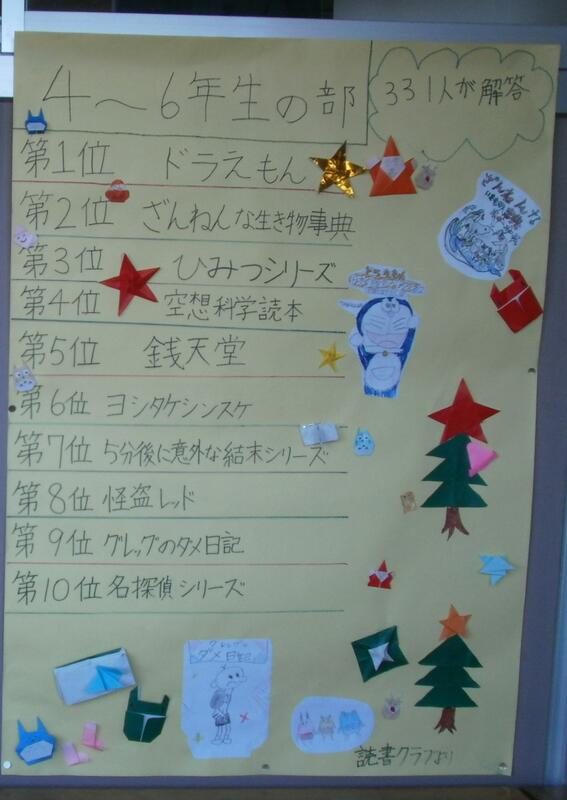 4～6年生の部
331人が解答
第1位 ドラえもん
第2位 ざんねんな生き物事典
第3位 ひみつシリーズ
第4位 空想科学読本
第5位 銭天堂
第6位 ヨシタケシンスケ
第7位 5分後に意外な結末シリーズ
第8位 怪盗レッド
第9位 グレッグのダメ日記
第10位 名探偵シリーズ
ざんねんな
グレッグの
ダメ日記
読書クラブより